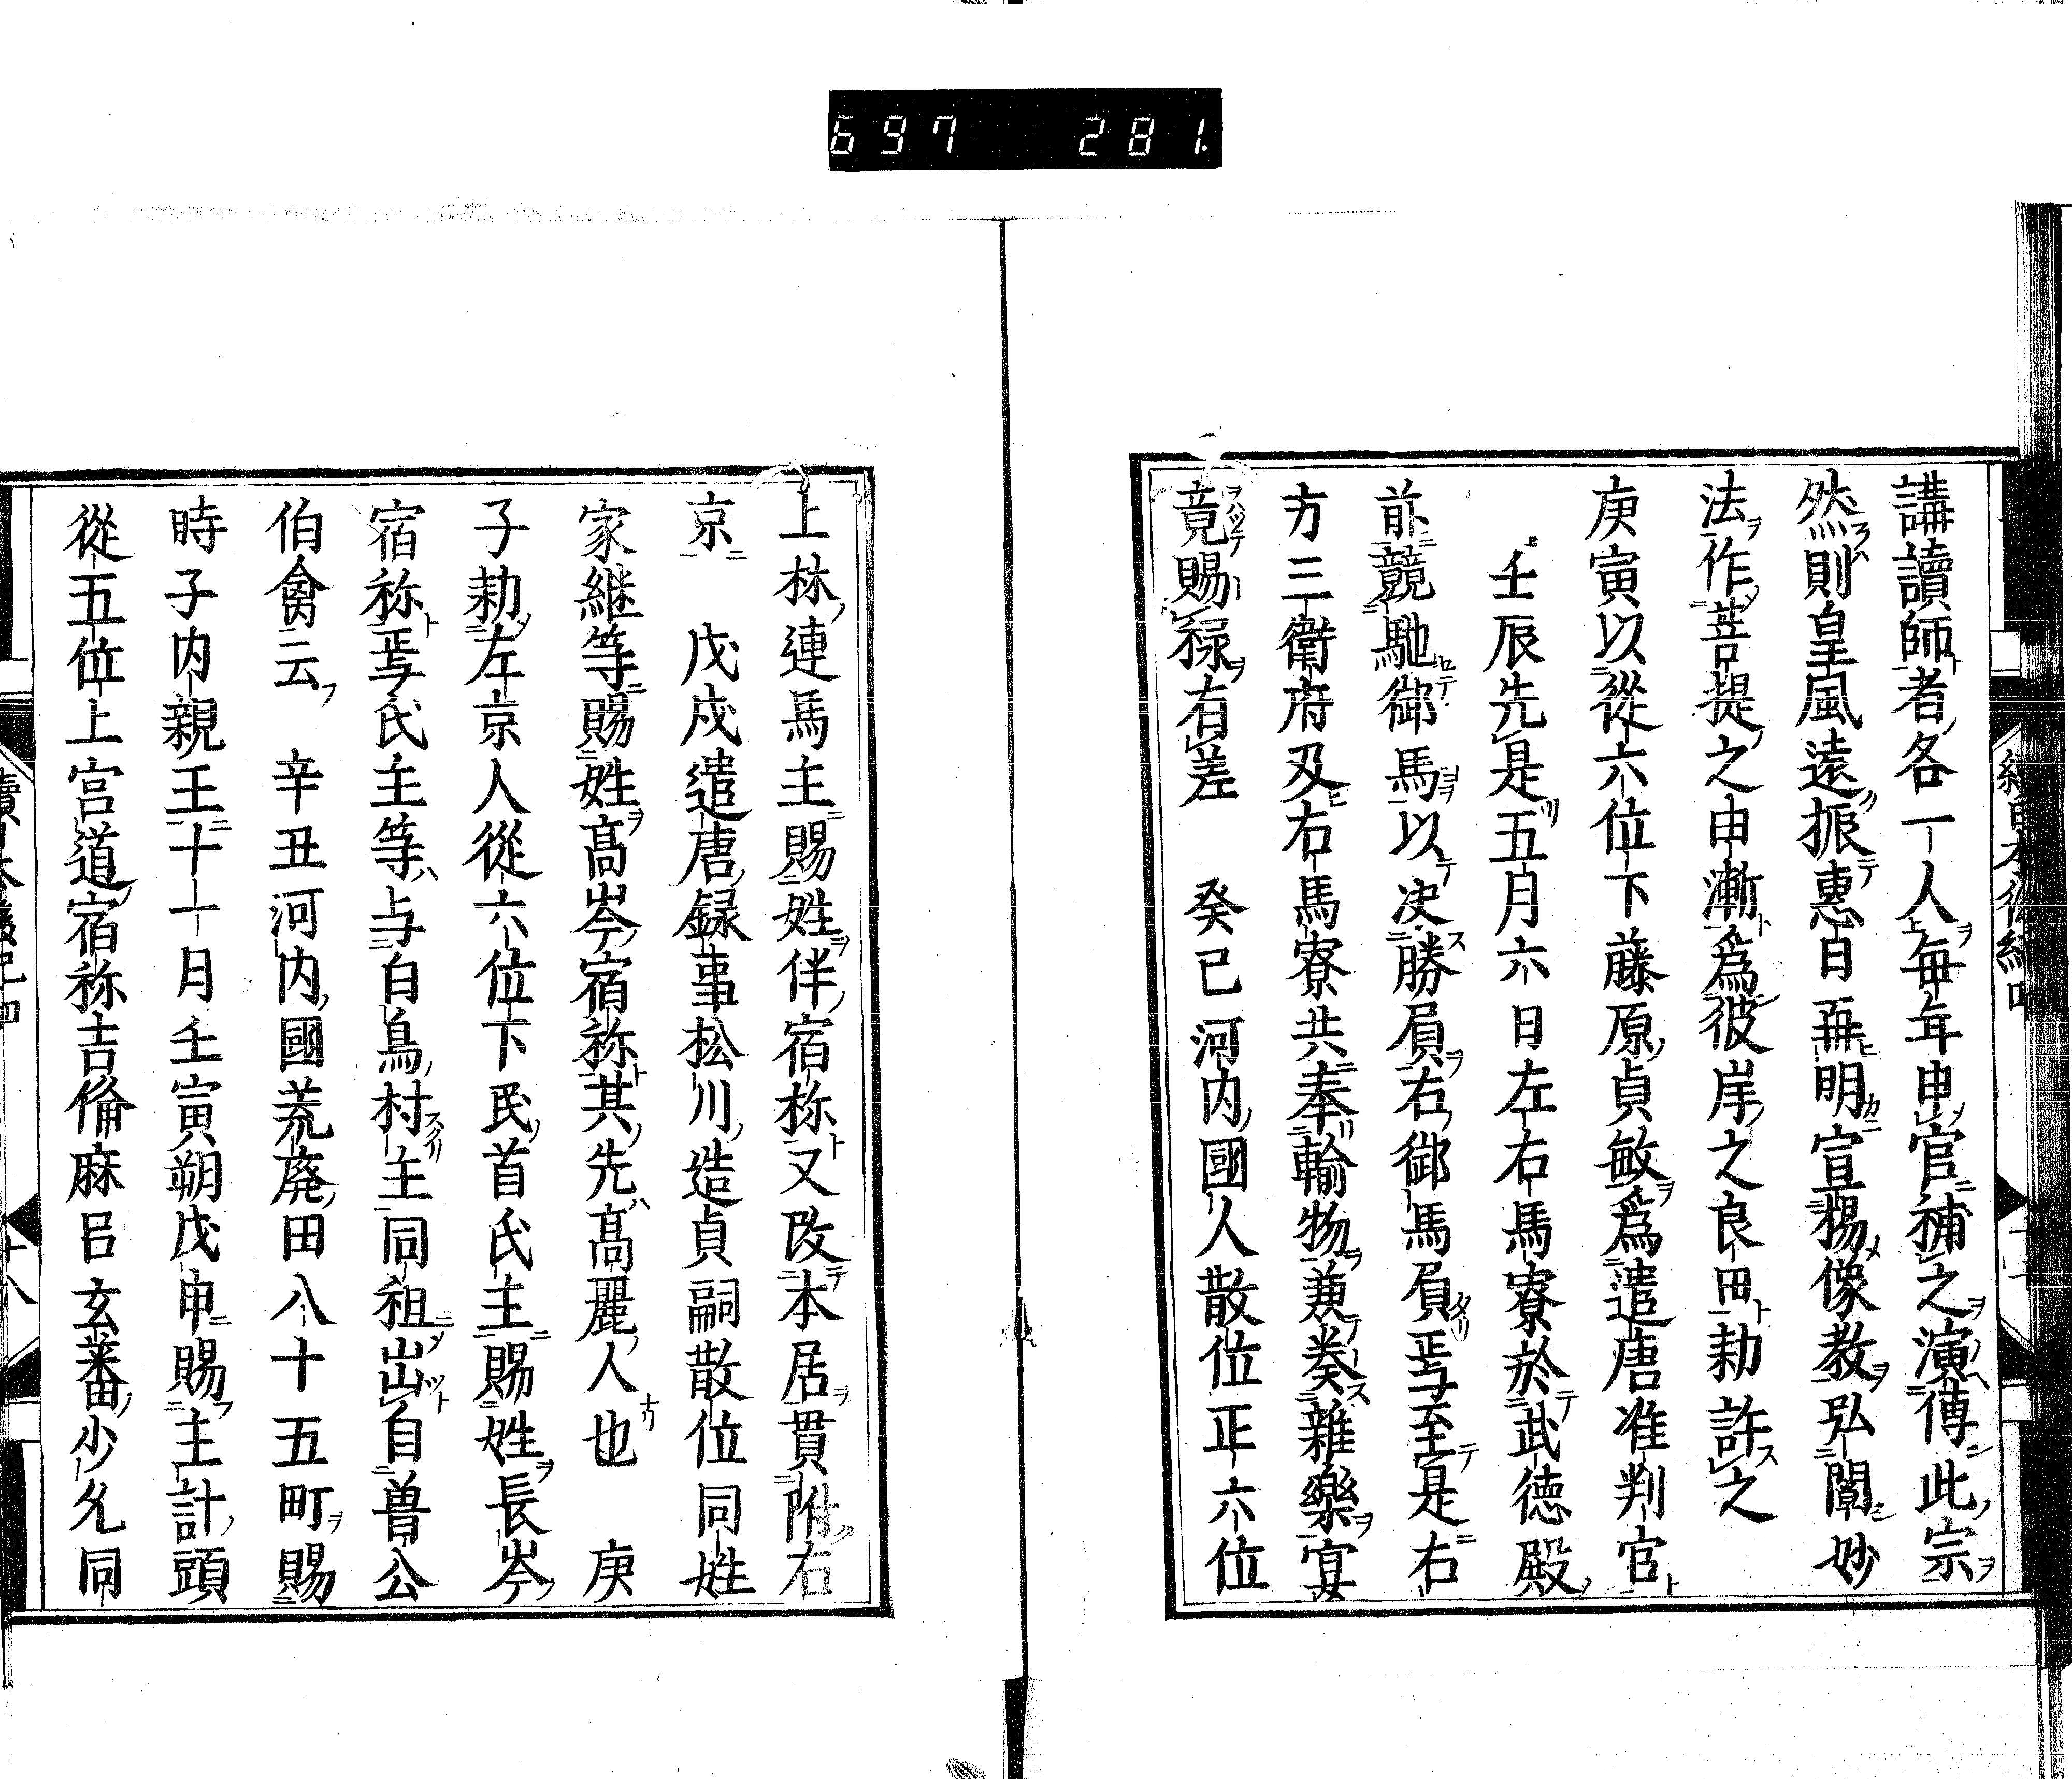 697 281.
講讀師者各一人每年申官補之演傳此宗
然則皇風遠振惠日再明宣揚像教弘闡妙
法作菩提之由漸爲彼岸之良田勅許之
庚寅以從六位下藤原貞敏爲遣唐准判官
壬辰先是五月六日左右馬寮於武德殿
前競馳御馬以決勝負右御馬負焉至是右
方三衛府及右馬寮共奉輸物兼奏雜樂宴
竟賜祿有差 癸巳河内國人散位正六位
上林連馬主賜姓伴宿祢又改本居貫附右
京 戊戌遣唐録事松川造貞嗣散位同姓
家継等賜姓高岑宿祢其先高麗人也 庚
子勅左京人從六位下民首氏主賜姓長岑
宿祢焉氏主等与白鳥村主同祖出自魯公
伯禽云 辛丑河内國荒廢田八十五町賜
時子内親王十一月壬寅朔戊申賜主計頭
從五位上宮道宿祢吉備麻呂玄蕃少允同